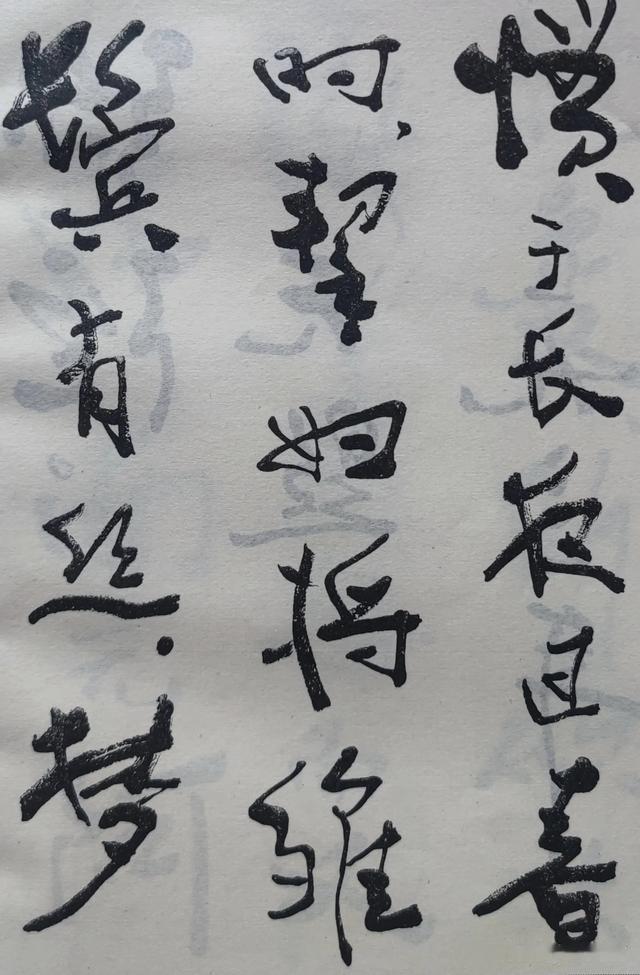 惯于长夜过春
时，挈妇将雏
鬓有丝。梦